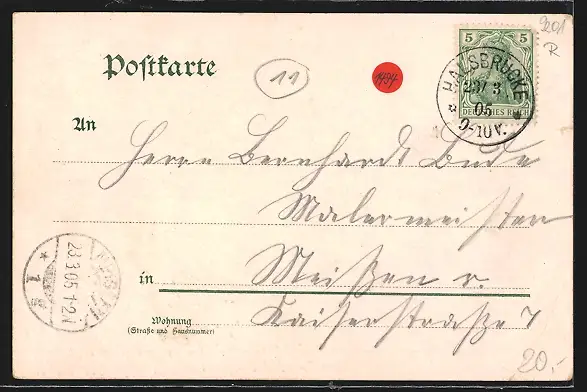 9201
R
5 5
DEUTSCHES REICH
HALSBRÜCKE
23/3
05
9-10V.
Postkarte
11
1494
An
Herrn Bernhardt Bude
Malermeister
in Meißen a.
Kaiserstraße 7
Wohnung
(Straße und Hausnummer)
23.3.05.1-2N
20.-